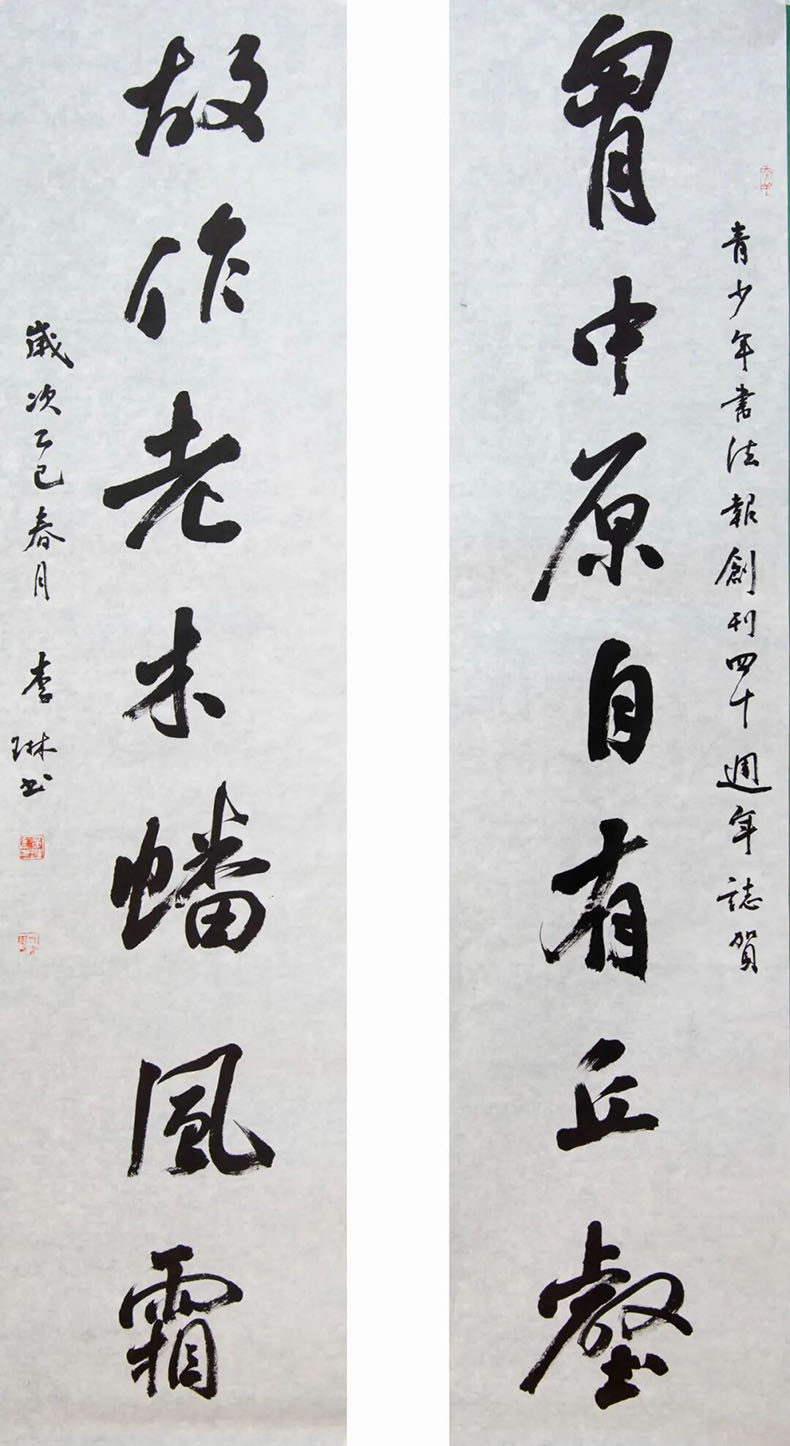 青少年書法報創刊四十週年誌賀
胷中原自有丘壑
故作老木蟠風霜
歲次乙巳春月 李琳书